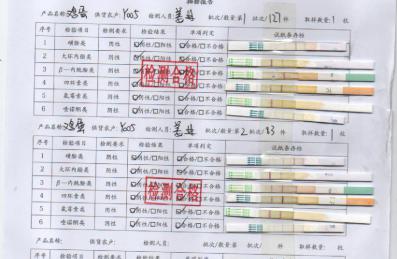 检验报告
产品名称:鸡蛋 供货农户:Y005 检测人员: 批次/数量:第1批次/127件 取样数量:1枚
序号 检验项目 检测要求 检验结果 单项判定 试纸条存档
1 磺胺类 阴性 ☑阴性/□阳性 ☑合格/□不合格
2 大环内酯类 阴性 ☑阴性/□阳性 ☑合格/□不合格
3 β—内酰胺类 阴性 ☑阴性/□阳性 ☑合格/□不合格
4 四环素类 阴性 ☑阴性/□阳性 ☑合格/□不合格
5 氟苯尼类 阴性 ☑阴性/□阳性 ☑合格/□不合格
6 喹诺酮类 阴性 ☑阴性/□阳性 ☑合格/□不合格
检测合格
产品名称:鸡蛋 供货农户:Y005 检测人员: 批次/数量:第2批次/ 件 取样数量:1枚
序号 检验项目 检测要求 检验结果 单项判定 试纸条存档
1 磺胺类 阴性 ☑阴性/□阳性 ☑合格/□不合格
2 大环内酯类 阴性 ☑阴性/□阳性 ☑合格/□不合格
3 β—内酰胺类 阴性 ☑阴性/□阳性 ☑合格/□不合格
4 四环素类 阴性 ☑阴性/□阳性 ☑合格/□不合格
5 阴性 ☑阴性/□阳性 ☑合格/□不合格
6 喹诺酮类 阴性 ☑阴性/□阳性 ☑合格/□不合格
检测合格
产品名称: 供货农户: 检测人员: 批次/数量:第 批次/ 件 取样数量: 枚